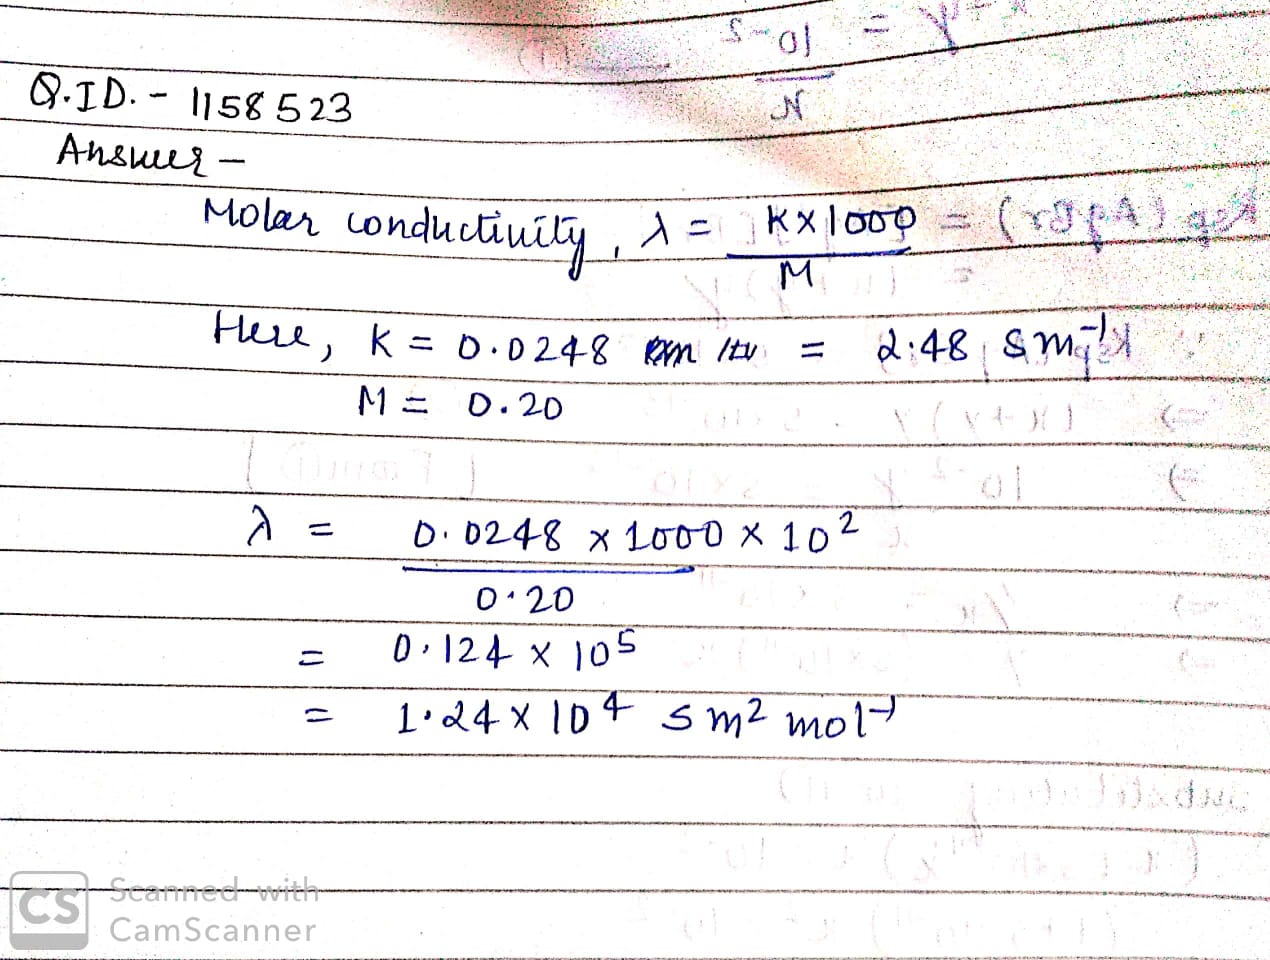 Q.ID. - 1158523
Answer -
Molar conductivity, λ = K×1000
M
Here, K = 0.0248 = 2.48 S m⁻¹
M = 0.20
λ = 0.0248 × 1000 × 10²
0.20
= 0.124 × 10⁵
= 1.24 × 10⁴ S m² mol⁻¹
CS Scanned with
CamScanner